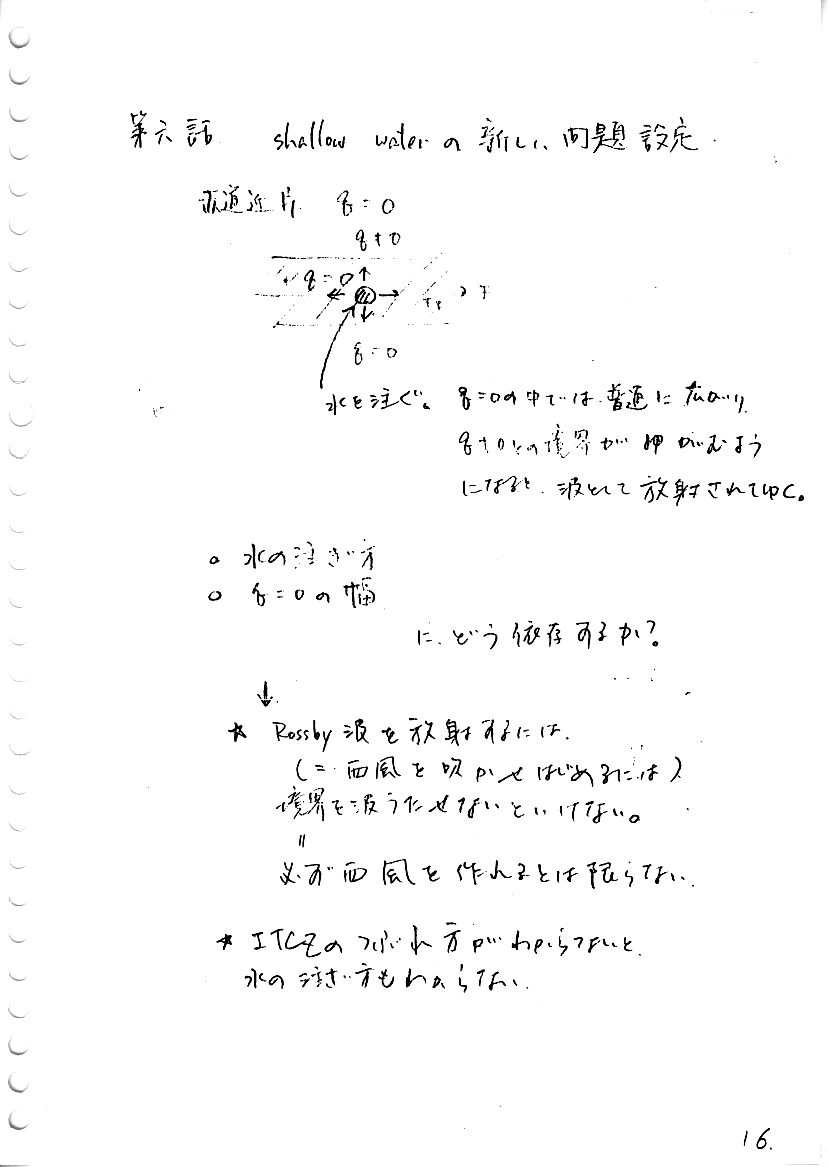 第六話 shallow water の新しい問題設定.
赤道近く q = 0
q ≠ 0
q = 0
q = 0
水を注ぐ。 q=0の中では普通に広がり
q≠0との境界が押がむよう
になると、波として放射されてゆく。
o 水の注ぎ方
o q = 0 の幅
に、どう依存するか?
↓
* Rossby 波を放射するには、
(= 西風を吹かせはじめるには)
境界を波うたせないといけない。
〃
必ず西風を作れるとは限らない.
* ITCZのつぶれ方がわからないと、
水の注ぎ方もわからない.
16.